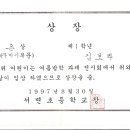 상 장
상 제 1 학년
위 어린이는 여름방학 과제 전시회에서 위와
같이 입상 하였으므로 상장을 줌.
1997년 8월 30일
서면초등학교장